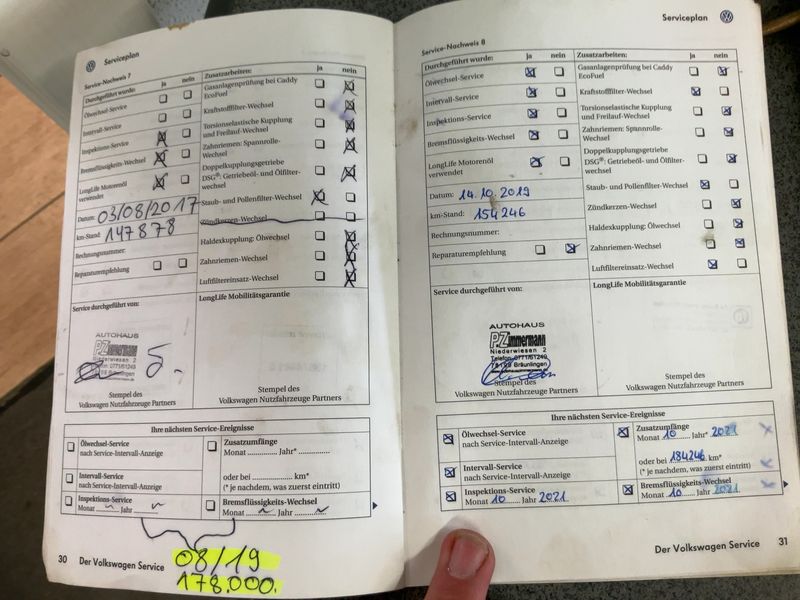 Serviceplan
Service-Nachweis 7
Durchgeführt wurde: ja nein
Ölwechsel-Service
Intervall-Service
Inspektions-Service
Bremsflüssigkeits-Wechsel
LongLife Motorenöl
verwendet
Datum: 03/08/2017
km-Stand: 147878
Rechnungsnummer:
Reparaturempfehlung
Zusatzarbeiten: ja nein
Gasanlagenprüfung bei Caddy
EcoFuel
Kraftstofffilter-Wechsel
Torsionselastische Kupplung
und Freilauf-Wechsel
Zahnriemen: Spannrolle-
Wechsel
Doppelkupplungsgetriebe
DSG®: Getriebeöl- und Ölfilter-
wechsel
Staub- und Pollenfilter-Wechsel
Zündkerzen-Wechsel
Haldexkupplung: Ölwechsel
Zahnriemen-Wechsel
Luftfiltereinsatz-Wechsel
Service durchgeführt von:
AUTOHAUS
P.Zimmermann
Niederwiesen 2
Telefon 0771/61249
78199 Bräunlingen
Stempel des
Volkswagen Nutzfahrzeuge Partners
LongLife Mobilitätsgarantie
Stempel des
Volkswagen Nutzfahrzeuge Partners
Ihre nächsten Service-Ereignisse
Ölwechsel-Service
nach Service-Intervall-Anzeige
Intervall-Service
nach Service-Intervall-Anzeige
Inspektions-Service
Monat Jahr
Zusatzumfänge
Monat ............. Jahr* .............
oder bei .................. km*
(* je nachdem, was zuerst eintritt)
Bremsflüssigkeits-Wechsel
Monat Jahr
08/19
178.000.
30 Der Volkswagen Service
Serviceplan
Service-Nachweis 8
Durchgeführt wurde: ja nein
Ölwechsel-Service
Intervall-Service
Inspektions-Service
Bremsflüssigkeits-Wechsel
LongLife Motorenöl
verwendet
Datum: 14.10.2019
km-Stand: 154246
Rechnungsnummer:
Reparaturempfehlung
Zusatzarbeiten: ja nein
Gasanlagenprüfung bei Caddy
EcoFuel
Kraftstofffilter-Wechsel
Torsionselastische Kupplung
und Freilauf-Wechsel
Zahnriemen: Spannrolle-
Wechsel
Doppelkupplungsgetriebe
DSG®: Getriebeöl- und Ölfilter-
wechsel
Staub- und Pollenfilter-Wechsel
Zündkerzen-Wechsel
Haldexkupplung: Ölwechsel
Zahnriemen-Wechsel
Luftfiltereinsatz-Wechsel
Service durchgeführt von:
AUTOHAUS
P.Zimmermann
Niederwiesen 2
Telefon 0771/61249
78199 Bräunlingen
Stempel des
Volkswagen Nutzfahrzeuge Partners
LongLife Mobilitätsgarantie
Stempel des
Volkswagen Nutzfahrzeuge Partners
Ihre nächsten Service-Ereignisse
Ölwechsel-Service
nach Service-Intervall-Anzeige
Intervall-Service
nach Service-Intervall-Anzeige
Inspektions-Service
Monat 10 Jahr 2021
Zusatzumfänge
Monat 10 Jahr* 2021
oder bei 184246 km*
(* je nachdem, was zuerst eintritt)
Bremsflüssigkeits-Wechsel
Monat 10 Jahr 2021
Der Volkswagen Service 31